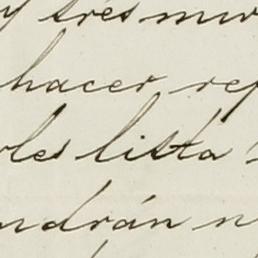 y tres mir
hacer rep
les lista
ndrán n